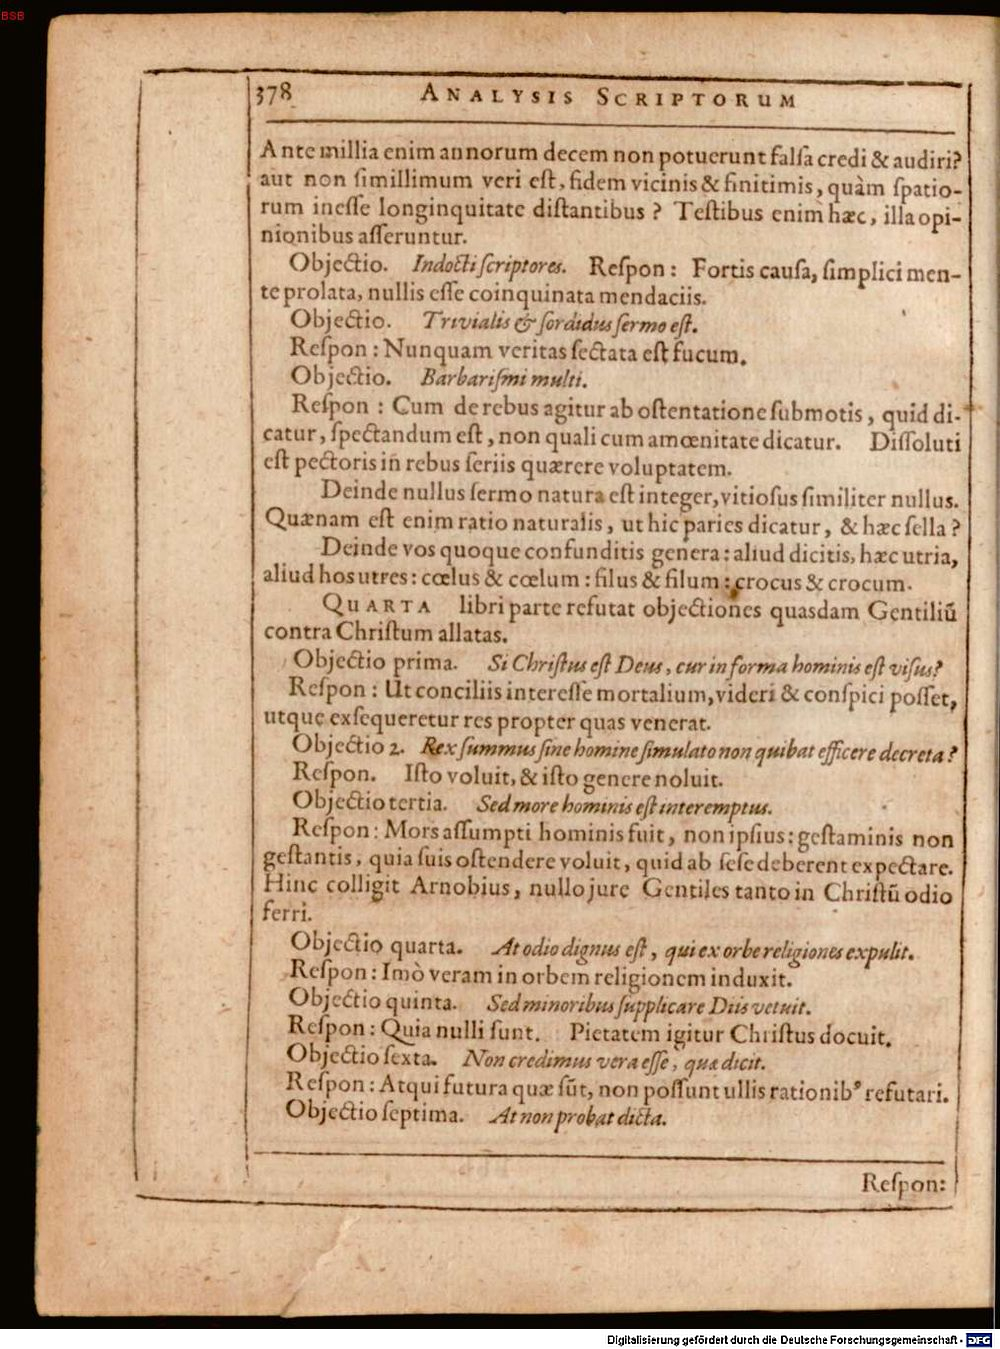 BSB
378 ANALYSIS SCRIPTORUM
Ante millia enim annorum decem non potuerunt falsa credi & audiri?
aut non simillimum veri est, fidem vicinis & finitimis, quàm spatio-
rum inesse longinquitate distantibus? Testibus enim hæc, illa opi-
nionibus asseruntur.
Objectio. Indocti scriptores. Respon: Fortis causa, simplici men-
te prolata, nullis esse coinquinata mendaciis.
Objectio. Trivialis & sordidus sermo est.
Respon: Nunquam veritas sectata est fucum.
Objectio. Barbarismi multi.
Respon: Cum de rebus agitur ab ostentatione submotis, quid di-
catur, spectandum est, non quali cum amœnitate dicatur. Dissoluti
est pectoris in rebus seriis quærere voluptatem.
Deinde nullus sermo natura est integer, vitiosus similiter nullus.
Quænam est enim ratio naturalis, ut hic paries dicatur, & hæc sella?
Deinde vos quoque confunditis genera: aliud dicitis, hæc utria,
aliud hos utres: cœlus & cœlum: filus & filum: crocus & crocum.
QUARTA libri parte refutat objectiones quasdam Gentiliū
contra Christum allatas.
Objectio prima. Si Christus est Deus, cur in forma hominis est visus?
Respon: Ut conciliis interesse mortalium, videri & conspici posset,
utque exsequeretur res propter quas venerat.
Objectio 2. Rex summus sine homine simulato non quibat efficere decreta?
Respon. Isto voluit, & isto genere noluit.
Objectio tertia. Sed more hominis est interemptus.
Respon: Mors assumpti hominis fuit, non ipsius: gestaminis non
gestantis, quia suis ostendere voluit, quid ab sese deberent expectare.
Hinc colligit Arnobius, nullo jure Gentiles tanto in Christū odio
ferri.
Objectio quarta. At odio dignus est, qui ex orbe religiones expulit.
Respon: Imò veram in orbem religionem induxit.
Objectio quinta. Sed minoribus supplicare Diis vetuit.
Respon: Quia nulli sunt. Pietatem igitur Christus docuit.
Objectio sexta. Non credimus vera esse, quæ dicit.
Respon: Atqui futura quæ sūt, non possunt ullis rationib⁹ refutari.
Objectio septima. At non probat dicta.
Respon:
Digitalisierung gefördert durch die Deutsche Forschungsgemeinschaft - DFG